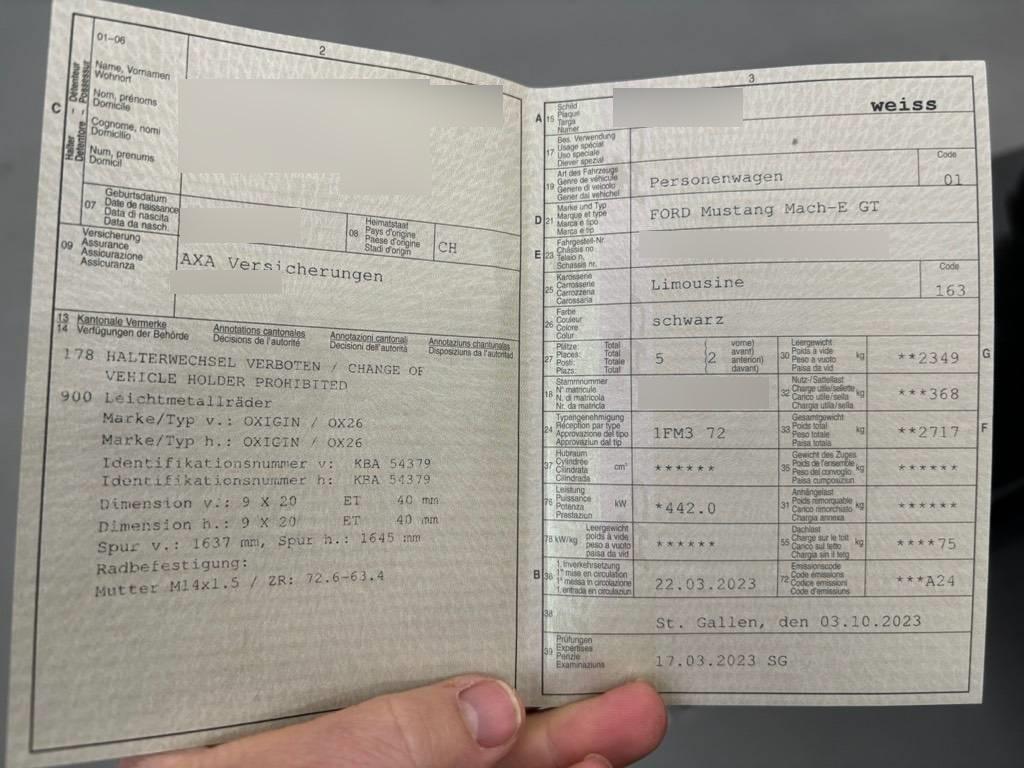 2
01-06
C
Halter Détenteur
Detentore Possessur
Name, Vornamen
Wohnort
Nom, prénoms
Domicile
Cognome, nomi
Domicilio
Num, prenums
Domicil
07
Geburtsdatum
Date de naissance
Data di nascita
Data da nasch.
08
Heimatstaat
Pays d'origine
Paese d'origine
Stadi d'origin
CH
09
Versicherung
Assurance
Assicurazione
Assicuranza
AXA Versicherungen
13 Kantonale Vermerke
14 Verfügungen der Behörde
Annotations cantonales
Décisions de l'autorité
Annotazioni cantonali
Decisioni dell'autorità
Annotaziuns chantunalas
Disposiziuns da l'autoritad
178 HALTERWECHSEL VERBOTEN / CHANGE OF
VEHICLE HOLDER PROHIBITED
900 Leichtmetallräder
Marke/Typ v.: OXIGIN / OX26
Marke/Typ h.: OXIGIN / OX26
Identifikationsnummer v: KBA 54379
Identifikationsnummer h: KBA 54379
Dimension v.: 9 X 20 ET 40 mm
Dimension h.: 9 X 20 ET 40 mm
Spur v.: 1637 mm, Spur h.: 1645 mm
Radbefestigung:
Mutter M14x1.5 / ZR: 72.6-63.4
3
A 15
Schild
Plaque
Targa
Numer
weiss
17
Bes. Verwendung
Usage spécial
Uso speciale
Diever spezial
*
19
Art des Fahrzeugs
Genre de véhicule
Genere di veicolo
Gener dal vehichel
Personenwagen
Code
01
D 21
Marke und Typ
Marque et type
Marca e tipo
Marca e tip
FORD Mustang Mach-E GT
E 23
Fahrgestell-Nr.
Châssis no
Telaio n.
Schassis nr.
25
Karosserie
Carrosserie
Carrozzeria
Carossaria
Limousine
Code
163
26
Farbe
Couleur
Colore
Colur
schwarz
27
Plätze: Total
Places: Total
Posti: Totale
Plazs: Total
5
(2
vorne)
avant)
anteriori)
davant)
30
Leergewicht
Poids à vide
Peso a vuoto
Paisa da vid
kg
**2349
G
18
Stammnummer
N° matricule
N. di matricola
Nr. da matricla
32
Nutz-/Sattellast
Charge utile/sellette
Carico utile/sella
Chargia utila/sella
kg
***368
24
Typengenehmigung
Réception par type
Approvazione del tipo
Approvaziun dal tip
1FM3 72
33
Gesamtgewicht
Poids total
Peso totale
Paisa totala
kg
**2717
F
37
Hubraum
Cylindrée
Cilindrata
Cilindrada
cm³
******
35
Gewicht des Zuges
Poids de l'ensemble
Peso del convoglio
Paisa cumposiziun
kg
******
76
Leistung
Puissance
Potenza
Prestaziun
kW
*442.0
31
Anhängelast
Poids remorquable
Carico rimorchiato
Chargia annexa
kg
******
78 kW/kg
Leergewicht
poids à vide
peso a vuoto
paisa da vid
******
55
Dachlast
Charge sur le toit
Carico sul tetto
Chargia sin il tetg
kg
****75
B 36
1. Inverkehrsetzung
1re mise en circulation
1a messa in circolazione
1. entrada en circulaziun
22.03.2023
72
Emissionscode
Code émissions
Codice emissioni
Code d'emissiuns
***A24
38
St. Gallen, den 03.10.2023
39
Prüfungen
Expertises
Perizie
Examinaziuns
17.03.2023 SG